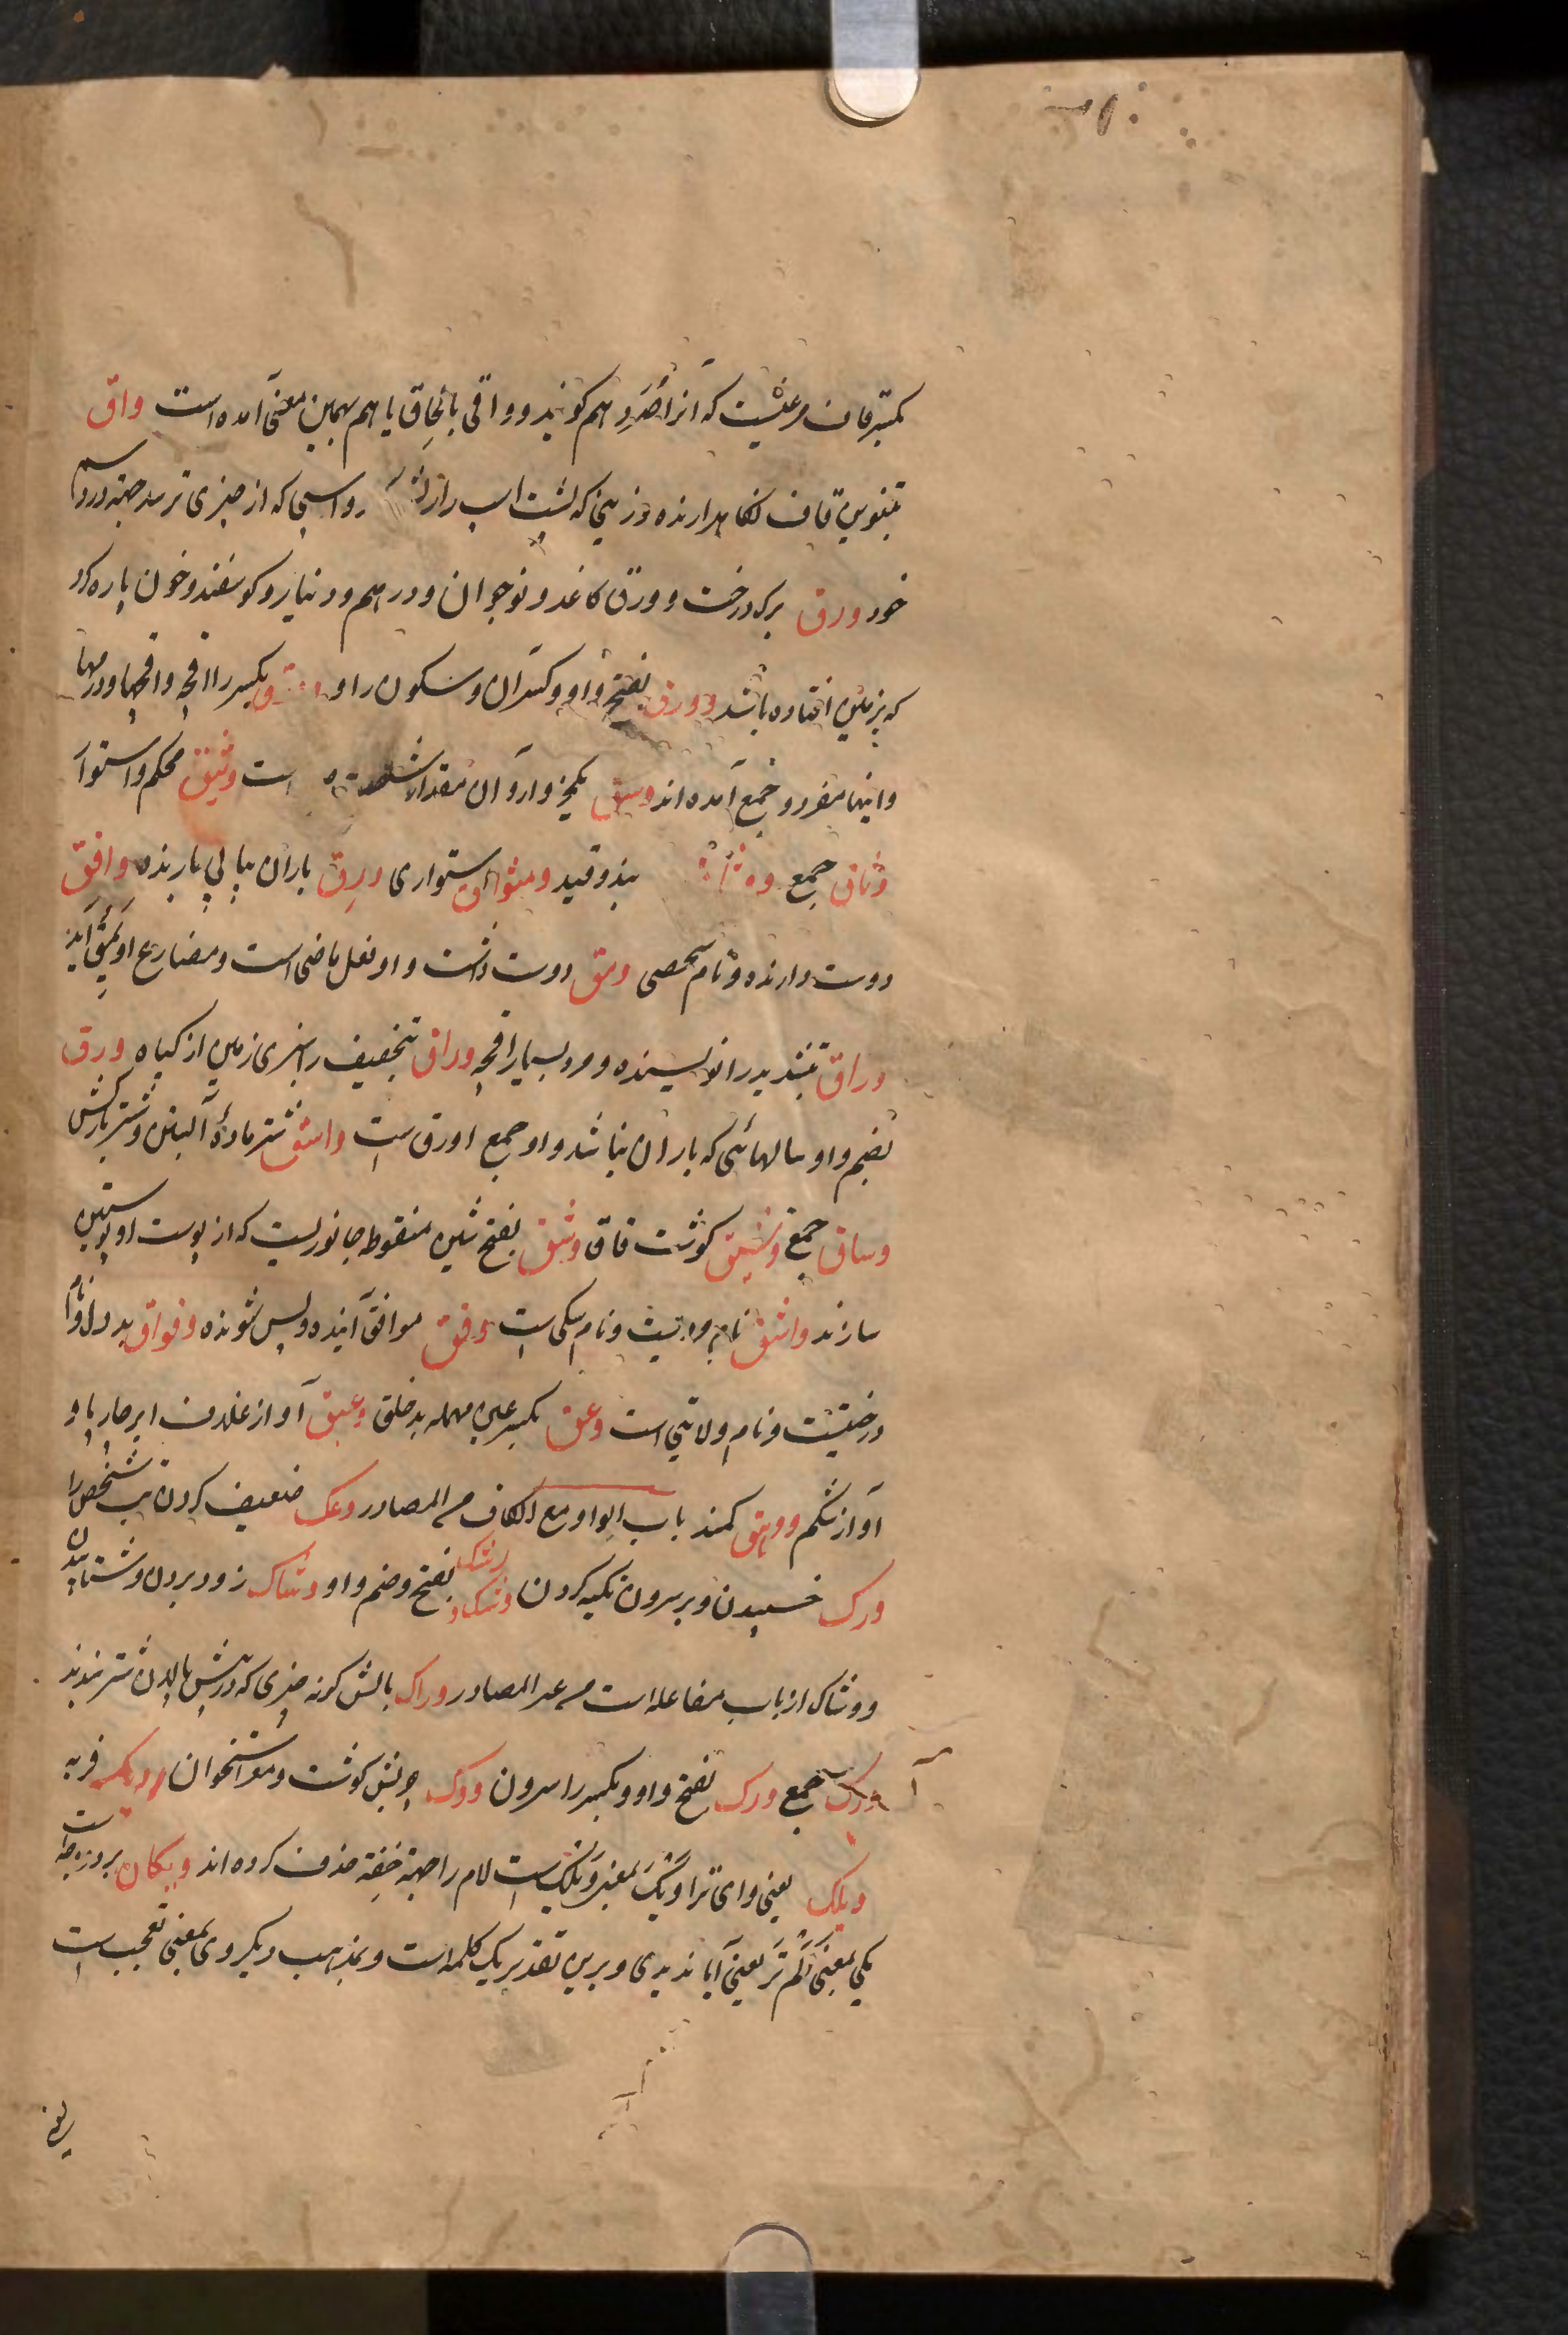 بکسر قاف مرغیست که آنرا صُرَد هم کویند و واقی بالحاق یا هم بهمین معنی آمده است واق
بتنوین قاف نکاهدارنده و زینی که پشت اسپ را ریش و اسپی که از چیزی ترسد جهة درد سم
خود ورق برک درخت و ورق کاغذ و نوجوان و دراهم و دنیار و کوسفند و خون پاره کرد
که بر زمین افتاده باشد و ورق بفتح واو و کسر آن و سکون را و بکسر را اقچه و اقچها و درمها
و اینها مفرد و جمع آمده اند وسق یکخروار و آن مقدار شصت است وثیق محکم و استوار
وثاق جمع بند و قید و میثواق استواری ورق باران پیاپی بارنده وافق
دوست دارنده و نام شخصی ومق دوست داشت و او فعل ماضی است و مضارع او یَمِقُ آید
وراق بتشدید را نویسنده و مرد بسیار اقچه وراق بتخفیف را سبزی زمین از کیاه ورق
بضم واو سالهائی که باران نباشد و او جمع اورق است واسق شتر مادۀ آبستن و شتر بارکش
وساق جمع وشیق کوشت قاق وشق بفتح شین منقوطه جانوریست که از پوست او پوستین
سازند واشق نام مردیست و نام سکی است وفق موافق آینده و پس شونده وقواق بددل و نام
درختیست و نام ولاتی است وعق بکسر عین مهمله بدخلق وعیق آواز غلاف ایر چارپا و
آواز شکم ووهق کمند باب الواو مع الکاف من المصادر وعک ضعیف کردن تب شخص را
ورک خسپیدن و بر سرون تکیه کردن وشکاو بفتح و ضم واو وشاک زود بردن و شتابیدن
و وشاک از باب مفاعله است من غیر المصادر وراک بالش کونه چیزی که در پیش پالان شتر بندند
ورک جمع ورک بفتح واو و بکسر را سرون وودک چربش کوشت و مغز استخوان فربه
ویلک یعنی وای ترا ویک بمعنی ویلک است لام را جهة خفة حذف کرده اند ویکان بر دو وجه است
یکی بمعنی اَلَم تَرَ یعنی آیا ندیدی و برین تقدیر یک کلمه است و بمذهب دیکر وی بمعنی تعجب است